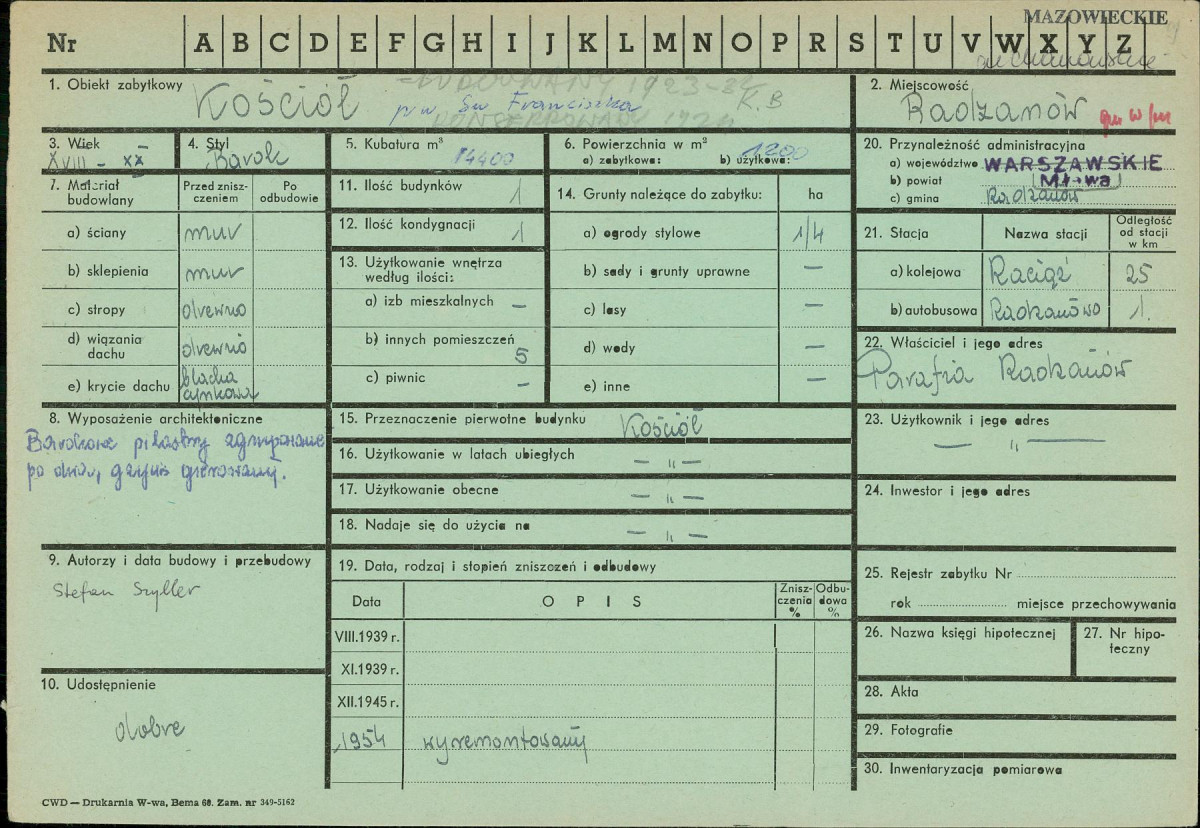 MAZOWIECKIE
Nr A B C D E F G H I J K L M N O P R S T U V W X Y Z
1. Obiekt zabytkowy
Kościół
BUDOWANY 1923-
p.w. Św Franciszka
K.B
KONSERWOWANY
2. Miejscowość
Radzanów
3. Wiek
XVIII – XX
4. Styl
Barok
5. Kubatura m³
14400
6. Powierzchnia w m²
a) zabytkowa: b) użytkowa:
1200
20. Przynależność administracyjna
a) województwo WARSZAWSKIE
b) powiat Mława
c) gmina Radzanów
7. Materiał budowlany
Przed zniszczeniem
Po odbudowie
a) ściany mur
b) sklepienia mur
c) stropy drewno
d) wiązania dachu drewno
e) krycie dachu blacha cynkowa
11. Ilość budynków 1
12. Ilość kondygnacji 1
13. Użytkowanie wnętrza według ilości:
a) izb mieszkalnych –
b) innych pomieszczeń 5
c) piwnic –
14. Grunty należące do zabytku: ha
a) ogrody stylowe 1/4
b) sady i grunty uprawne –
c) lasy –
d) wody –
e) inne –
21. Stacja Nazwa stacji Odległość od stacji w km
a) kolejowa Raciąż 25
b) autobusowa Radzanów 1.
22. Właściciel i jego adres
Parafia Radzanów
8. Wyposażenie architektoniczne
Barokowe pilastry zgrupowane
po dwa, gzyms gierowany.
15. Przeznaczenie pierwotne budynku Kościół
16. Użytkowanie w latach ubiegłych – „ –
17. Użytkowanie obecne – „ –
18. Nadaje się do użycia na – „ –
23. Użytkownik i jego adres
– „ –
24. Inwestor i jego adres
9. Autorzy i data budowy i przebudowy
Stefan Szyller
19. Data, rodzaj i stopień zniszczeń i odbudowy
Data OPIS Zniszczenia % Odbudowa %
VIII.1939 r.
XI.1939 r.
XII.1945 r.
1954 wyremontowany
25. Rejestr zabytku Nr
rok miejsce przechowywania
26. Nazwa księgi hipotecznej
27. Nr hipoteczny
10. Udostępnienie
dobre
28. Akta
29. Fotografie
30. Inwentaryzacja pomiarowa
CWD — Drukarnia W-wa, Bema 60. Zam. nr 349-5162